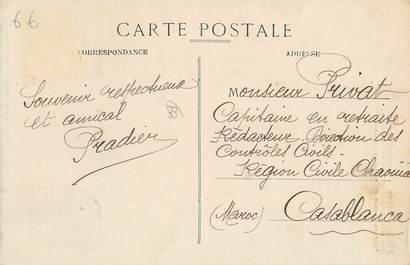 6€
CARTE POSTALE
CORRESPONDANCE
ADRESSE
Souvenir respectueux
et amical
Pradier
Monsieur Privat
Capitaine en retraite
Rédacteur Direction des
Contrôles Civils -
Région Civile Chaouia
(Maroc) Casablanca